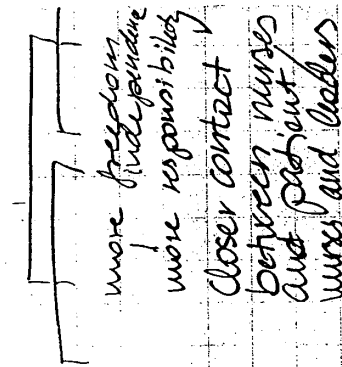 more freedom
independence
more responsibility
closer contact
between nurses
and patient
nurses and leaders